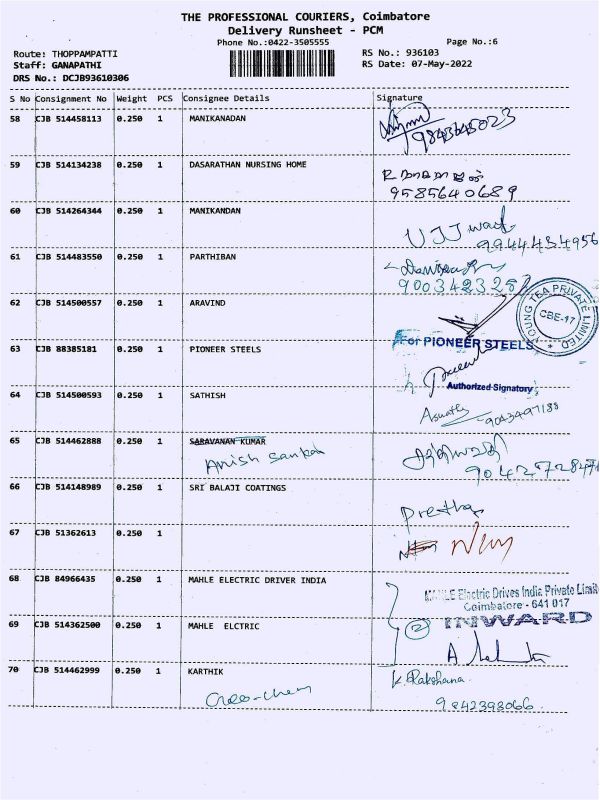 THE PROFESSIONAL COURIERS, Coimbatore
Delivery Runsheet - PCM
Phone No.:0422-3505555 Page No.:6
Route: THOPPAMPATTI RS No.: 936103
Staff: GANAPATHI RS Date: 07-May-2022
DRS No.: DCJB93610306
S No Consignment No Weight PCS Consignee Details Signature
58 CJB 514458113 0.250 1 MANIKANADAN
9843645023
59 CJB 514134238 0.250 1 DASARATHAN NURSING HOME
9585640689
60 CJB 514264344 0.250 1 MANIKANDAN
9944434956
61 CJB 514483550 0.250 1 PARTHIBAN
9003423287
62 CJB 514500557 0.250 1 ARAVIND
YOUNG TEA PRIVATE LIMITED
CBE-17
For PIONEER STEELS
63 CJB 88385181 0.250 1 PIONEER STEELS
Authorized Signatory
64 CJB 514500593 0.250 1 SATHISH
9043497188
65 CJB 514462888 0.250 1 SARAVANAN KUMAR
Anish Sankar
66 CJB 514148989 0.250 1 SRI BALAJI COATINGS
Pretha
67 CJB 51362613 0.250 1
68 CJB 84966435 0.250 1 MAHLE ELECTRIC DRIVER INDIA
MAHLE Electric Drives India Private Limit
Coimbatore - 641 017
2 INWARD
69 CJB 514362500 0.250 1 MAHLE ELCTRIC
70 CJB 514462999 0.250 1 KARTHIK
K. Rakshana
9842393066